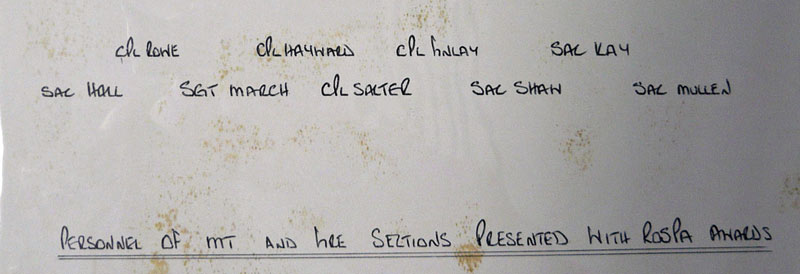 CPL ROWE CPL HAYWARD CPL FINLAY SAC KAY
SAC HALL SGT MARCH CPL SALTER SAC SHAW SAC MULLEN
PERSONNEL OF MT AND FIRE SECTIONS PRESENTED WITH ROSPA AWARDS